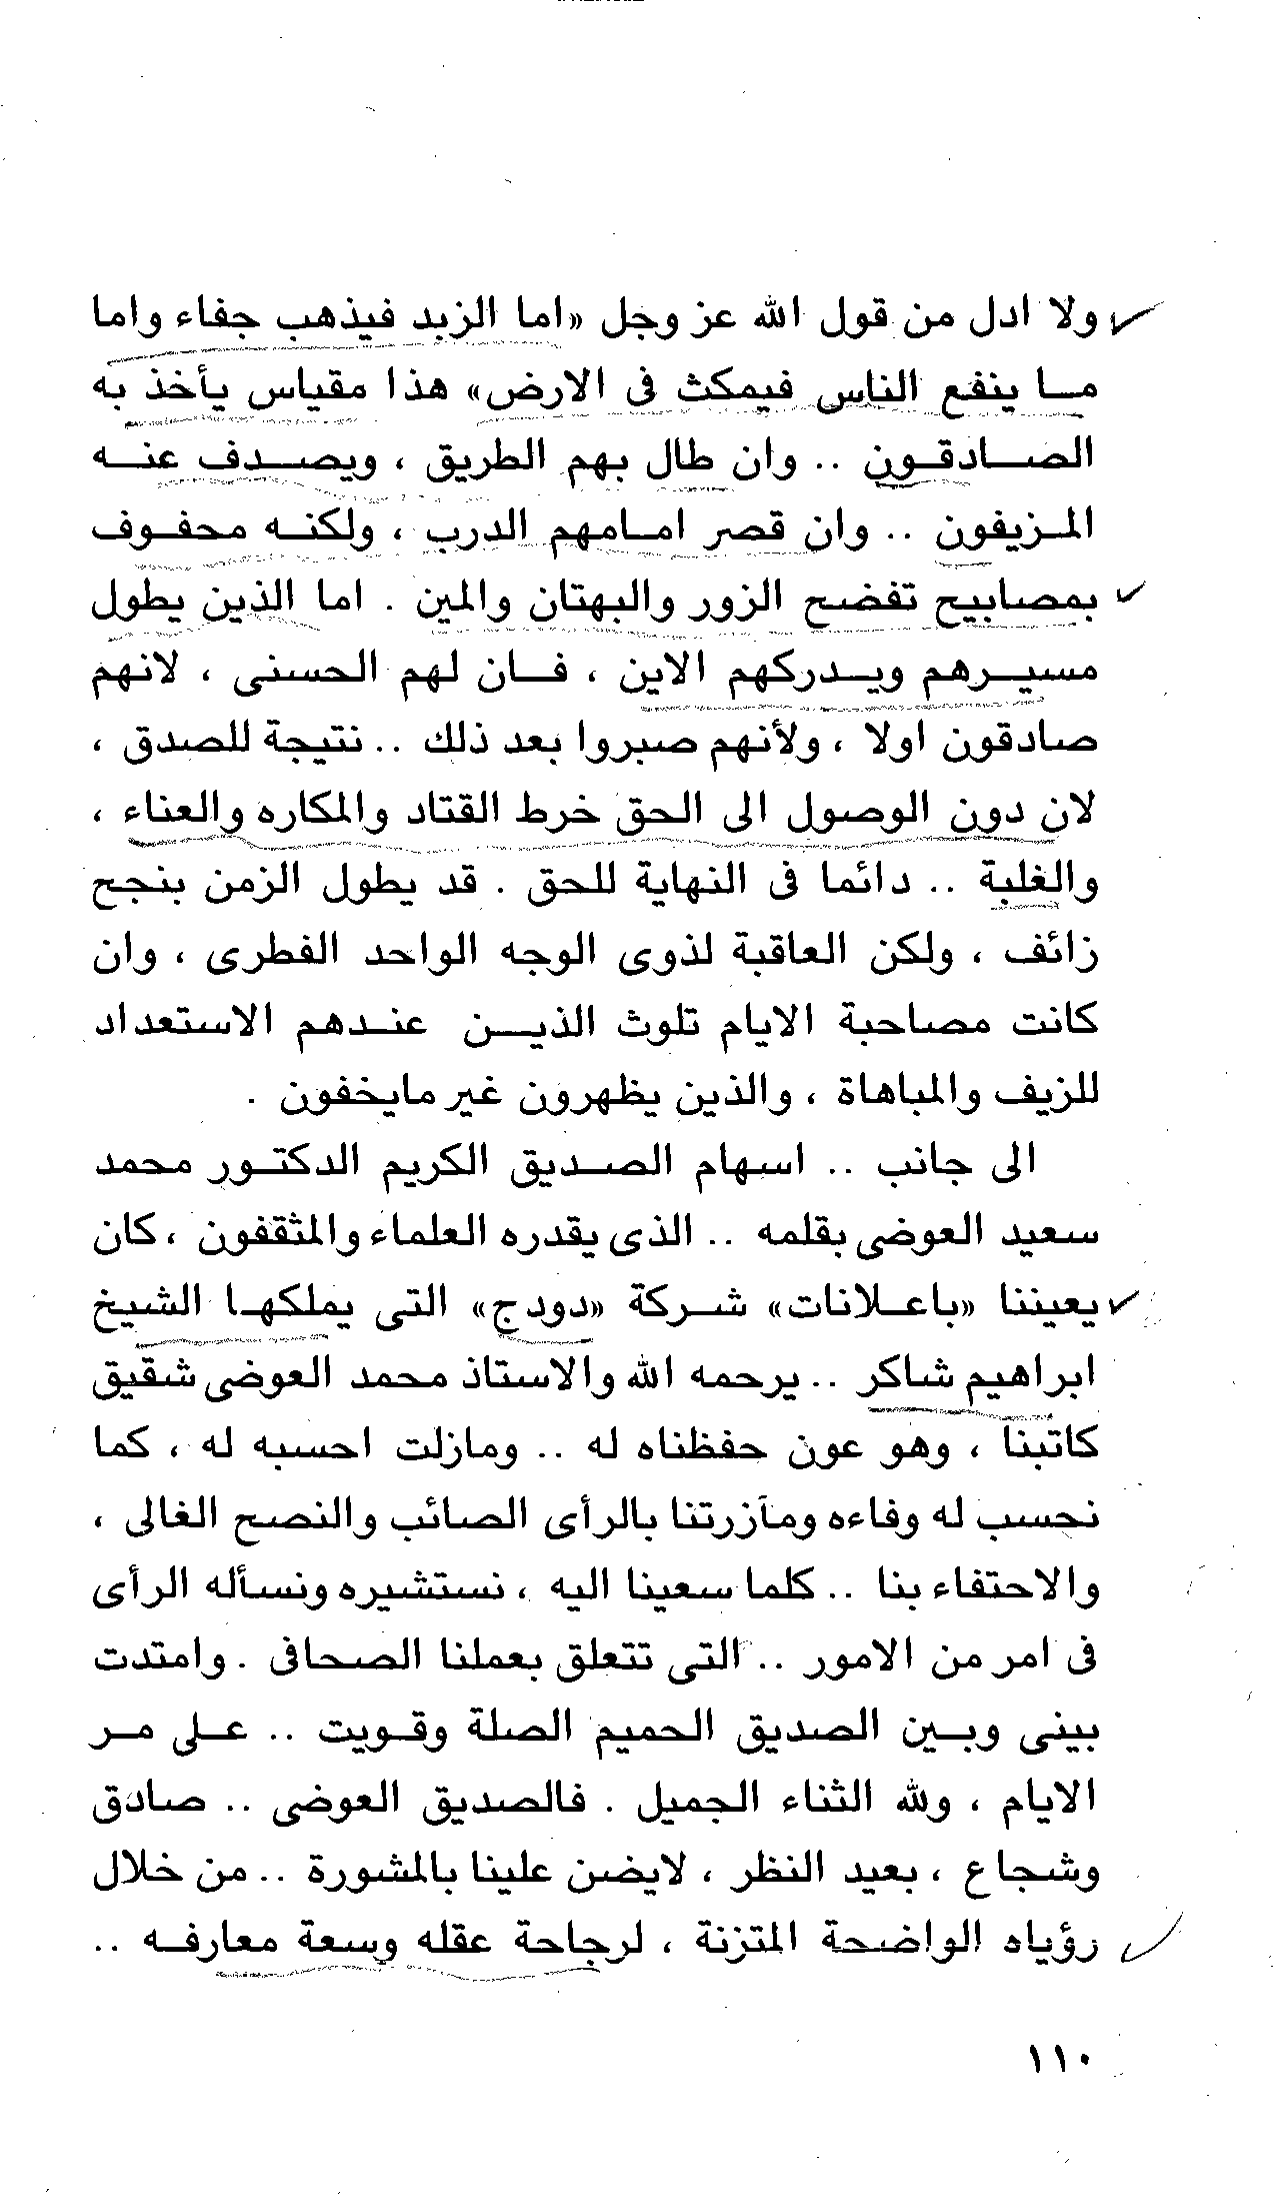 ولا ادل من قول الله عز وجل «اما الزبد فيذهب جفاء واما
ما ينفع الناس فيمكث فى الارض» هذا مقياس يأخذ به
الصادقون .. وان طال بهم الطريق ، ويصدف عنه
المزيفون .. وان قصر امامهم الدرب ، ولكنه محفوف
بمصابيح تفضح الزور والبهتان والمين . اما الذين يطول
مسيرهم ويدركهم الاين ، فان لهم الحسنى ، لانهم
صادقون اولا ، ولأنهم صبروا بعد ذلك .. نتيجة للصدق ،
لان دون الوصول الى الحق خرط القتاد والمكاره والعناء ،
والغلبة .. دائما فى النهاية للحق . قد يطول الزمن بنجح
زائف ، ولكن العاقبة لذوى الوجه الواحد الفطرى ، وان
كانت مصاحبة الايام تلوث الذين عندهم الاستعداد
للزيف والمباهاة ، والذين يظهرون غير مايخفون .
الى جانب .. اسهام الصديق الكريم الدكتور محمد
سعيد العوضى بقلمه .. الذى يقدره العلماء والمثقفون ، كان
يعيننا «باعلانات» شركة «دودج» التى يملكها الشيخ
ابراهيم شاكر .. يرحمه الله والاستاذ محمد العوضى شقيق
كاتبنا ، وهو عون حفظناه له .. ومازلت احسبه له ، كما
نحسب له وفاءه ومآزرتنا بالرأى الصائب والنصح الغالى ،
والاحتفاء بنا .. كلما سعينا اليه ، نستشيره ونسأله الرأى
فى امر من الامور .. التى تتعلق بعملنا الصحافى . وامتدت
بينى وبين الصديق الحميم الصلة وقويت .. على مر
الايام ، ولله الثناء الجميل . فالصديق العوضى .. صادق
وشجاع ، بعيد النظر ، لايضن علينا بالمشورة .. من خلال
رؤياه الواضحة المتزنة ، لرجاحة عقله وسعة معارفه ..
١١٠